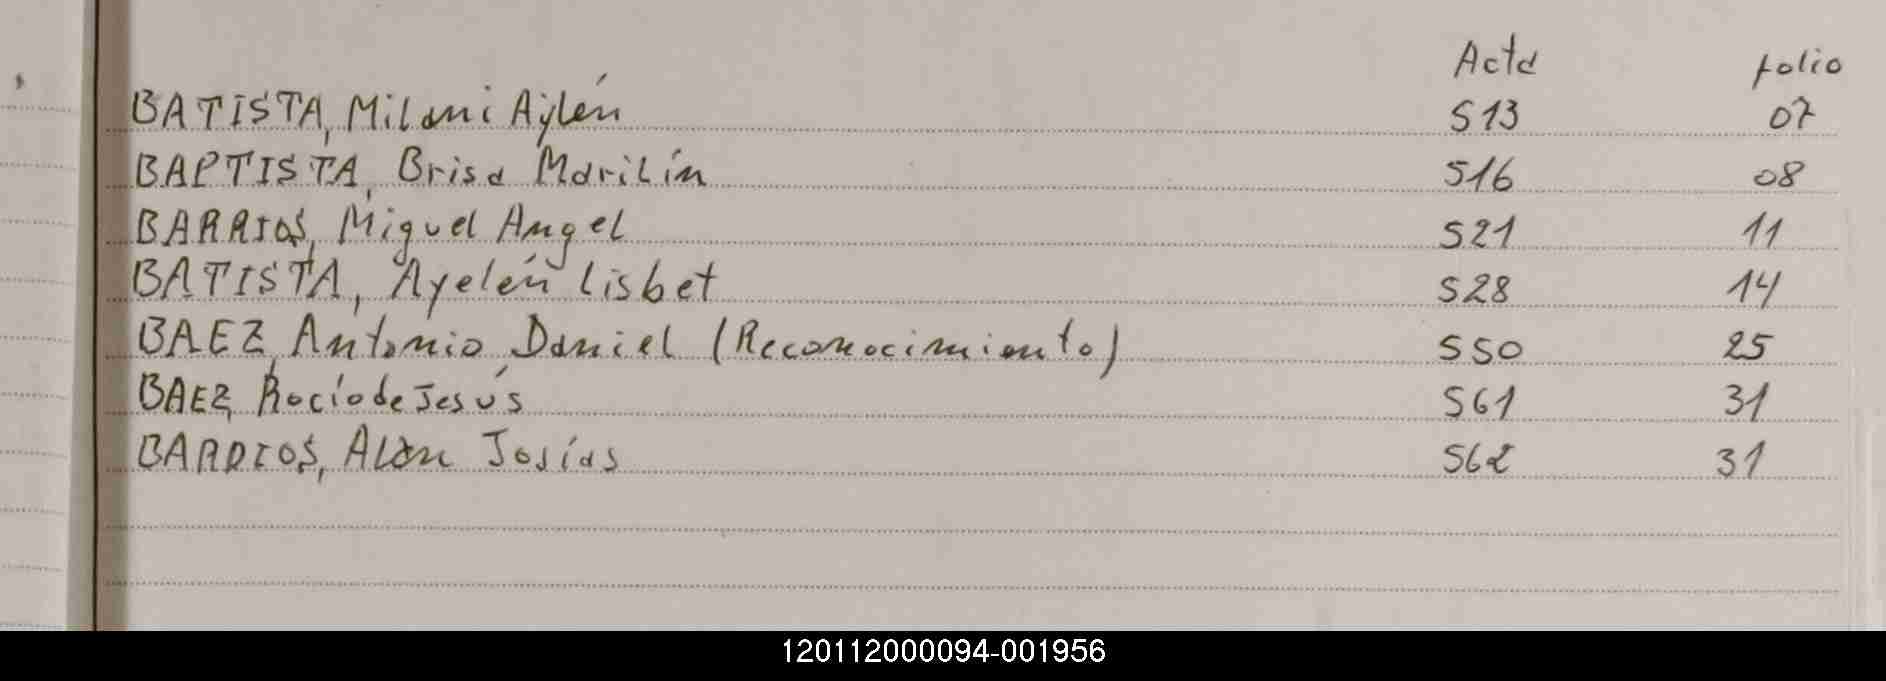 Acta folio
BATISTA, Milani Aylén 513 07
BAPTISTA, Brisa Marilín 516 08
BARRIOS, Miguel Angel 521 11
BATISTA, Ayelén Lisbet 528 14
BAEZ, Antonio Daniel (Reconocimiento) 550 25
BAEZ, Rocío de Jesús 561 31
BARRIOS, Alan Josías 562 31
120112000094-001956